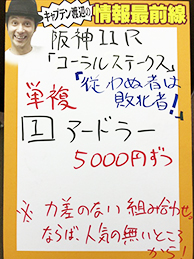 キャプテン渡辺の
情報最前線
阪神11R
「コーラルステークス」
単複
「従わぬ者は
敗北者!」
1 アードラー
5000円ずつ
※ 力差のない組み合わせ
ならば、人気の無いところ
から!